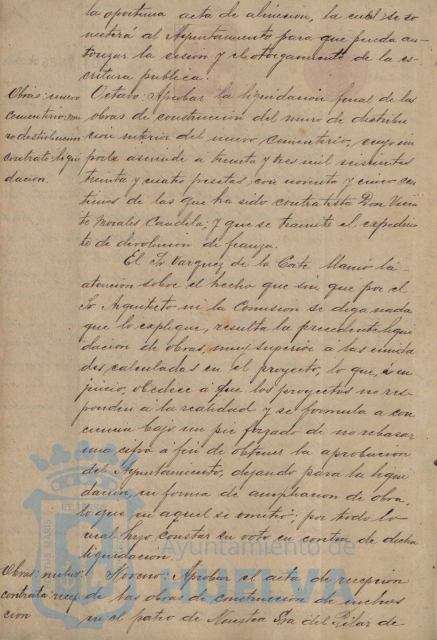 la oportuna acta de alineacion, la cual se so
meterá al Ayuntamiento para que pueda au-
torizar la cesion y el otorgamiento de la es-
critura publica.
Obras: nuevo
cementerio: mu
ro distribucion
contrata: liqui
dacion.
Octavo: Aprobar la liquidacion final de las
obras de construccion del muro de distribu
cion interior del nuevo cementerio, cuyo im
porte asciende a treinta y tres mil seiscientas
treinta y cuatro pesetas, con noventa y cinco cen
timos de las que ha sido contratista Don Vicen
te Morales Candela; y que se tramite el expedien
te de devolucion de fianza.
El Sr Vazquez de la Corte llamó la
atencion sobre el hecho que sin que por el
Sr Arquitecto ni la Comision se diga nada
que lo explique, resulta la precedente liqui
dacion de obras, muy superior a las
des, calculadas en el proyecto, lo que, á su
juicio, obedece a que los proyectos no res-
ponden á la realidad y se formula a con
ciencia bajo un pie forzado de no rebasar
una cifra á fin de obtener la aprobacion
del Ayuntamiento, dejando para la liqui
dacion, en forma de ampliacion de obra,
lo que en aquel se omitió; por todo lo
cual hizo constar su voto en contra de dicha
liquidacion.
Obras: nichos:
contrata: recep
cion
Noveno: Aprobar el acta de recepcion
de las obras de construccion de nichos
en el patio de Nuestra Sra del Pilar de
Ayuntamiento de
HUELVA